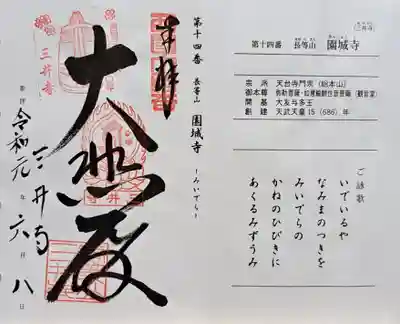 奉拝
第十四番 長等山 園城寺
~みいでら~
大悲殿
三井寺
参拝 令和元年六月八日
三井寺
第十四番 長等山 園城寺
(三井寺)
宗派 天台寺門宗(総本山)
御本尊 弥勒菩薩・如意輪観世音菩薩(観音堂)
開基 大友与多王
創建 天武天皇15(686)年
ご詠歌
いでいるや
なみまのつきを
みいでらの
かねのひびきに
あくるみずうみ